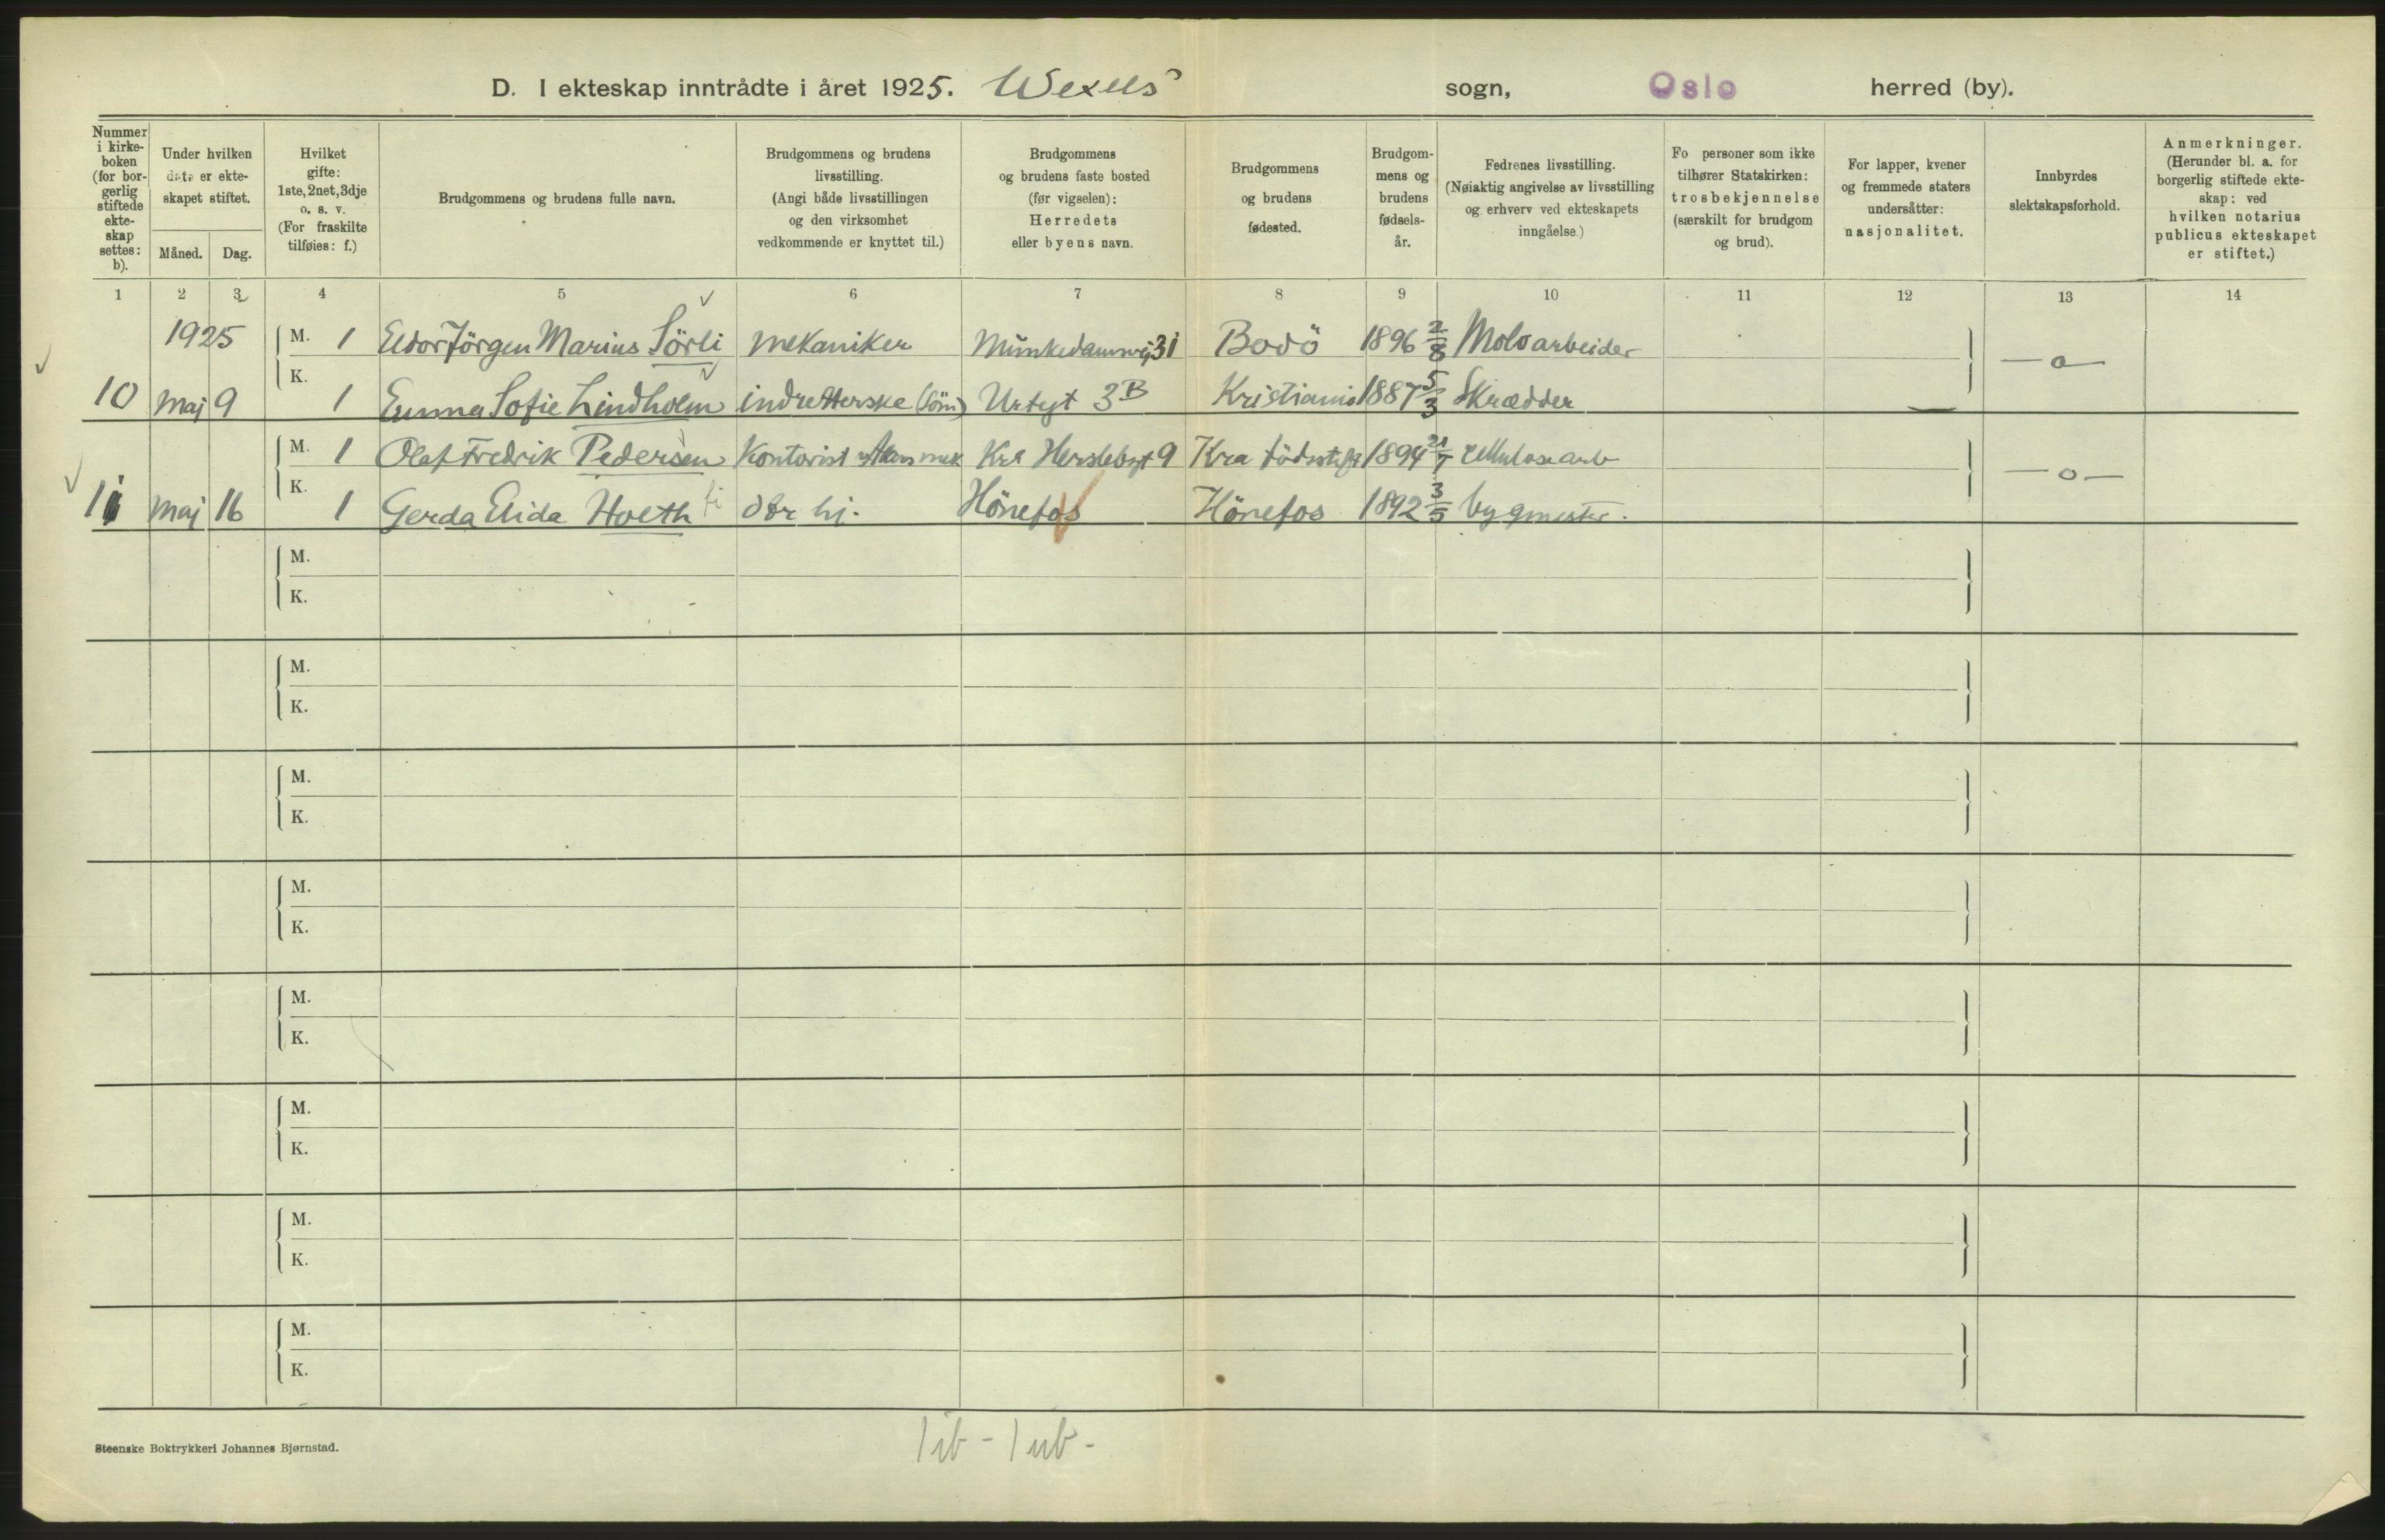 D. I ekteskap inntrådte i året 1925. Wexels sogn, Oslo herred (by).
Nummer i kirke- boken (for bor- gerlig stiftede ekte- skap settes: b).
Under hvilken dato er ekte- skapet stiftet.
Måned. Dag.
Hvilket gifte: 1ste, 2net, 3dje o. s. v. (For fraskilte tilføies: f.)
Brudgommens og brudens fulle navn.
Brudgommens og brudens livsstilling. (Angi både livsstillingen og den virksomhet vedkommende er knyttet til.)
Brudgommens og brudens faste bosted (før vigselen): Herredets eller byens navn.
Brudgommens og brudens fødested.
Brudgom- mens og brudens fødsels- år.
Fedrenes livsstilling. (Nøiaktig angivelse av livsstilling og erhverv ved ekteskapets inngåelse.)
Fo personer som ikke tilhører Statskirken: trosbekjennelse (særskilt for brudgom og brud).
For lapper, kvener og fremmede staters undersåtter: nasjonalitet.
Innbyrdes slektskapsforhold.
Anmerkninger. (Herunder bl. a. for borgerlig stiftede ekte- skap: ved hvilken notarius publicus ekteskapet er stiftet.)
1 2 3 4 5 6 7 8 9 10 11 12 13 14
1925 M. 1 Eldor Jörgen Marius Sörli mekaniker Munkedamsvej 31 Bodö 1896 2/8 Moloarbeider
10 Maj 9 K. 1 Emma Sofie Lindholm indretterske (söm) Urtegt 3B Kristiania 1887 5/3 Skrædder — o —
M. 1 Olaf Fredrik Pedersen Kontorist Kra Herslebsgt 9 Kra födsstift 1894 21/7 cellulosearb
11 Maj 16 K. 1 Gerda Elida Hoeth Hönefos Hönefos 1892 3/5 bygmester. — o —
M.
K.
M.
K.
M.
K.
M.
K.
M.
K.
M.
K.
M.
K.
M.
K.
Steenske Boktrykkeri Johannes Bjørnstad.
1 ib - 1 ub -